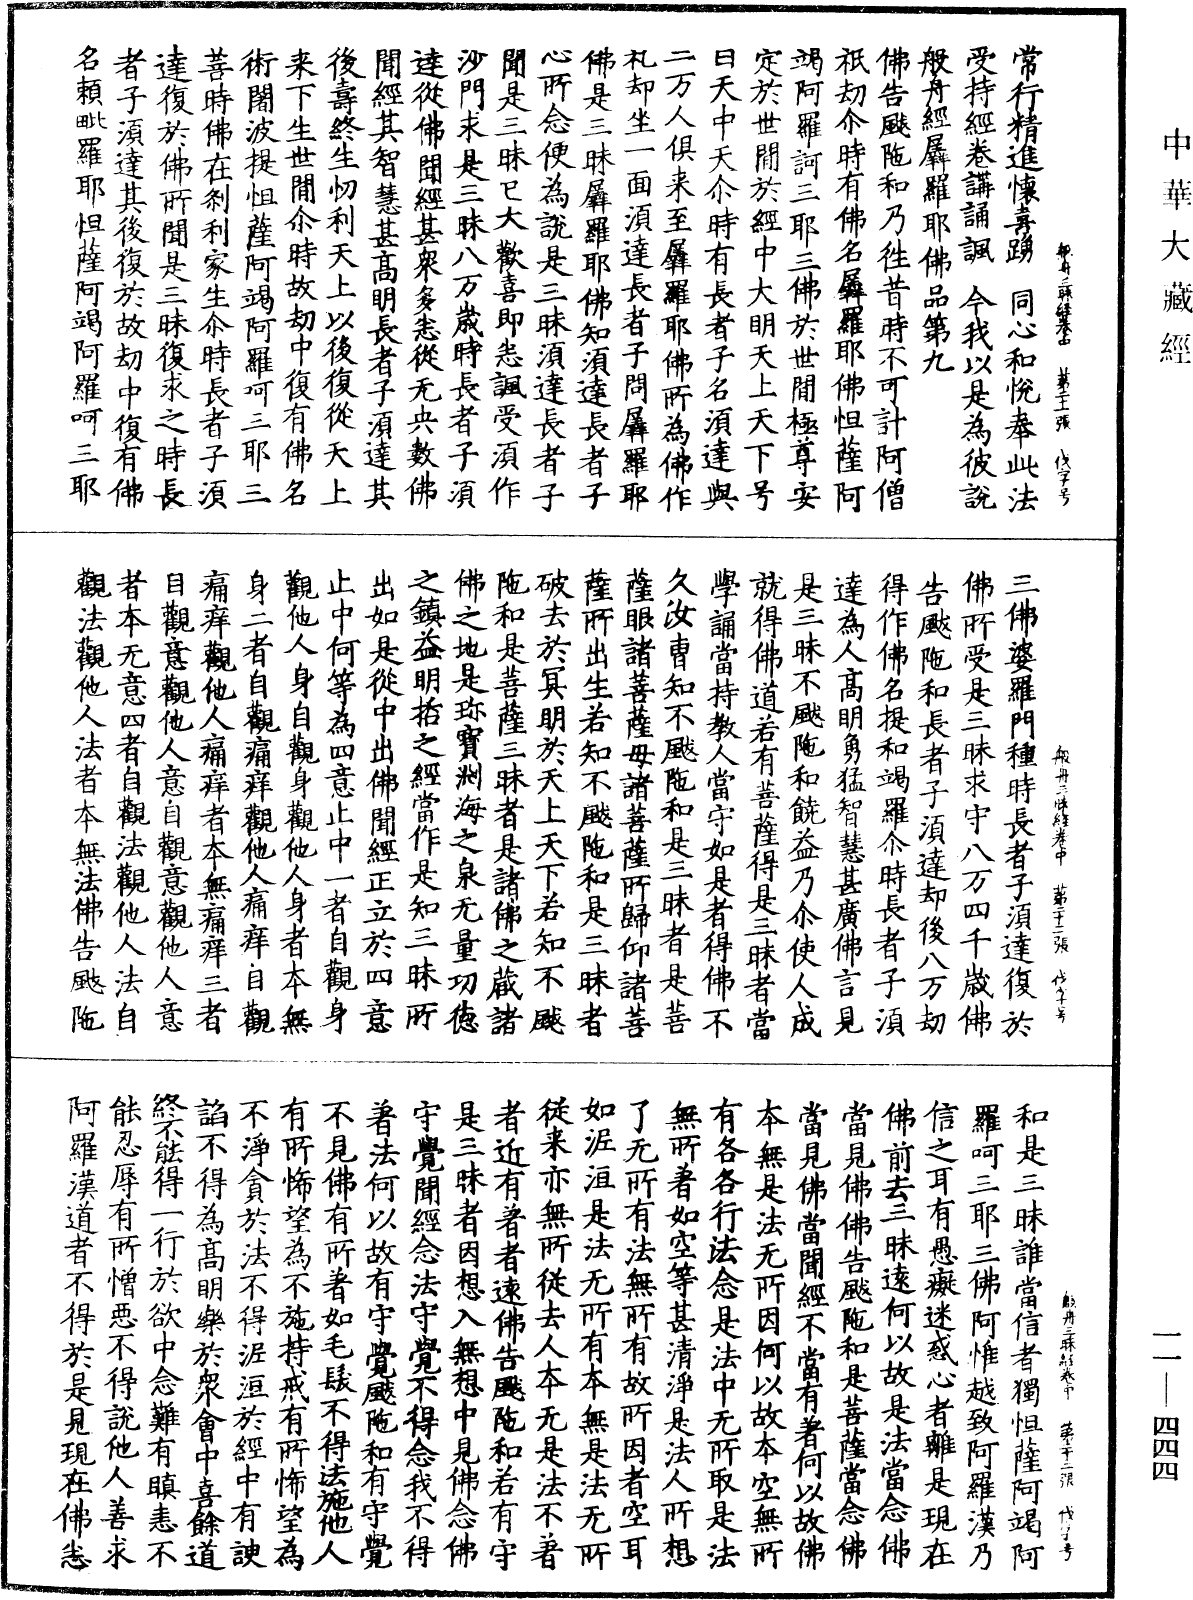 中華大藏經
般舟三昧經卷中　第二十一張　伐字号
常行精進懷喜踴　同心和悅奉此法
受持經卷講誦諷　今我以是為彼說
般舟經羼羅耶佛品第九
佛告颰陁和乃徃昔時不可計阿僧
祇劫尒時有佛名羼羅耶佛怛薩阿
竭阿羅訶三耶三佛於世間極尊安
定於世間於經中大明天上天下号
曰天中天尒時有長者子名須達與
二万人俱来至羼羅耶佛所為佛作
礼却坐一面須達長者子問羼羅耶
佛是三昧羼羅耶佛知須達長者子
心所念便為說是三昧須達長者子
聞是三昧已大歡喜即悉諷受須作
沙門求是三昧八万歲時長者子須
達從佛聞經甚衆多悉從无央數佛
聞經其智慧甚高明長者子須達其
後壽終生忉利天上以後復從天上
来下生世間尒時故劫中復有佛名
術闍波提怛薩阿竭阿羅呵三耶三
菩時佛在剎利家生尒時長者子須
達復於佛所聞是三昧復求之時長
者子須達其後復於故劫中復有佛
名賴毗羅耶怛薩阿竭阿羅呵三耶
般舟三昧經卷中　第二十二張　伐字号
三佛婆羅門種時長者子須達復於
佛所受是三昧求守八万四千歲佛
告颰陁和長者子須達却後八万劫
得作佛名提和竭羅尒時長者子須
達為人高明勇猛智慧甚廣佛言見
是三昧不颰陁和饒益乃尒使人成
就得佛道若有菩薩得是三昧者當
學誦當持教人當守如是者得佛不
久汝曹知不颰陁和是三昧者是菩
薩眼諸菩薩母諸菩薩所歸仰諸菩
薩所出生若知不颰陁和是三昧者
破去於冥明於天上天下若知不颰
陁和是菩薩三昧者是諸佛之藏諸
佛之地是珎寶渊海之泉无量功德
之鎮益明哲之經當作是知三昧所
出如是從中出佛聞經正立於四意
止中何等為四意止中一者自觀身
觀他人身自觀身觀他人身者本無
身二者自觀痛痒觀他人痛痒自觀
痛痒觀他人痛痒者本無痛痒三者
自觀意觀他人意自觀意觀他人意
者本无意四者自觀法觀他人法自
觀法觀他人法者本無法佛告颰陁
般舟三昧經卷中　第二十三張　伐字号
和是三昧誰當信者獨怛薩阿竭阿
羅呵三耶三佛阿惟越致阿羅漢乃
信之耳有愚癡迷惑心者離是現在
佛前去三昧遠何以故是法當念佛
當見佛佛告颰陁和是菩薩當念佛
當見佛當聞經不當有著何以故佛
本無是法无所因何以故本空無所
有各各行法念是法中无所取是法
無所著如空等甚清淨是法人所想
了无所有法無所有故所因者空耳
如泥洹是法无所有本無是法无所
從来亦無所從去人本无是法不著
者近有著者遠佛告颰陁和若有守
是三昧者因想入無想中見佛念佛
守覺聞經念法守覺不得念我不得
著法何以故有守覺颰陁和有守覺
不見佛有所著如毛髮不得法施他人
有所悕望為不施持戒有所悕望為
不淨貪於法不得泥洹於經中有諛
諂不得為高明樂於衆會中喜餘道
終不能得一行於欲中念難有瞋恚不
能忍辱有所憎惡不得說他人善求
阿羅漢道者不得於是見現在佛悉
一一—四四四